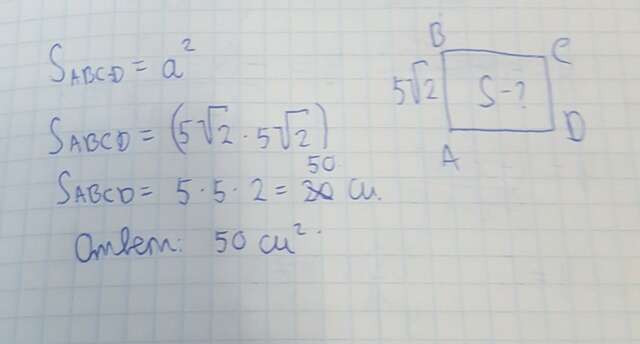 S_ABCD = a²
S_ABCD = (5√2 · 5√2)
50
S_ABCD = 5 · 5 · 2 = см.
Ответ: 50 см².
B
C
5√2
S-?
A
D